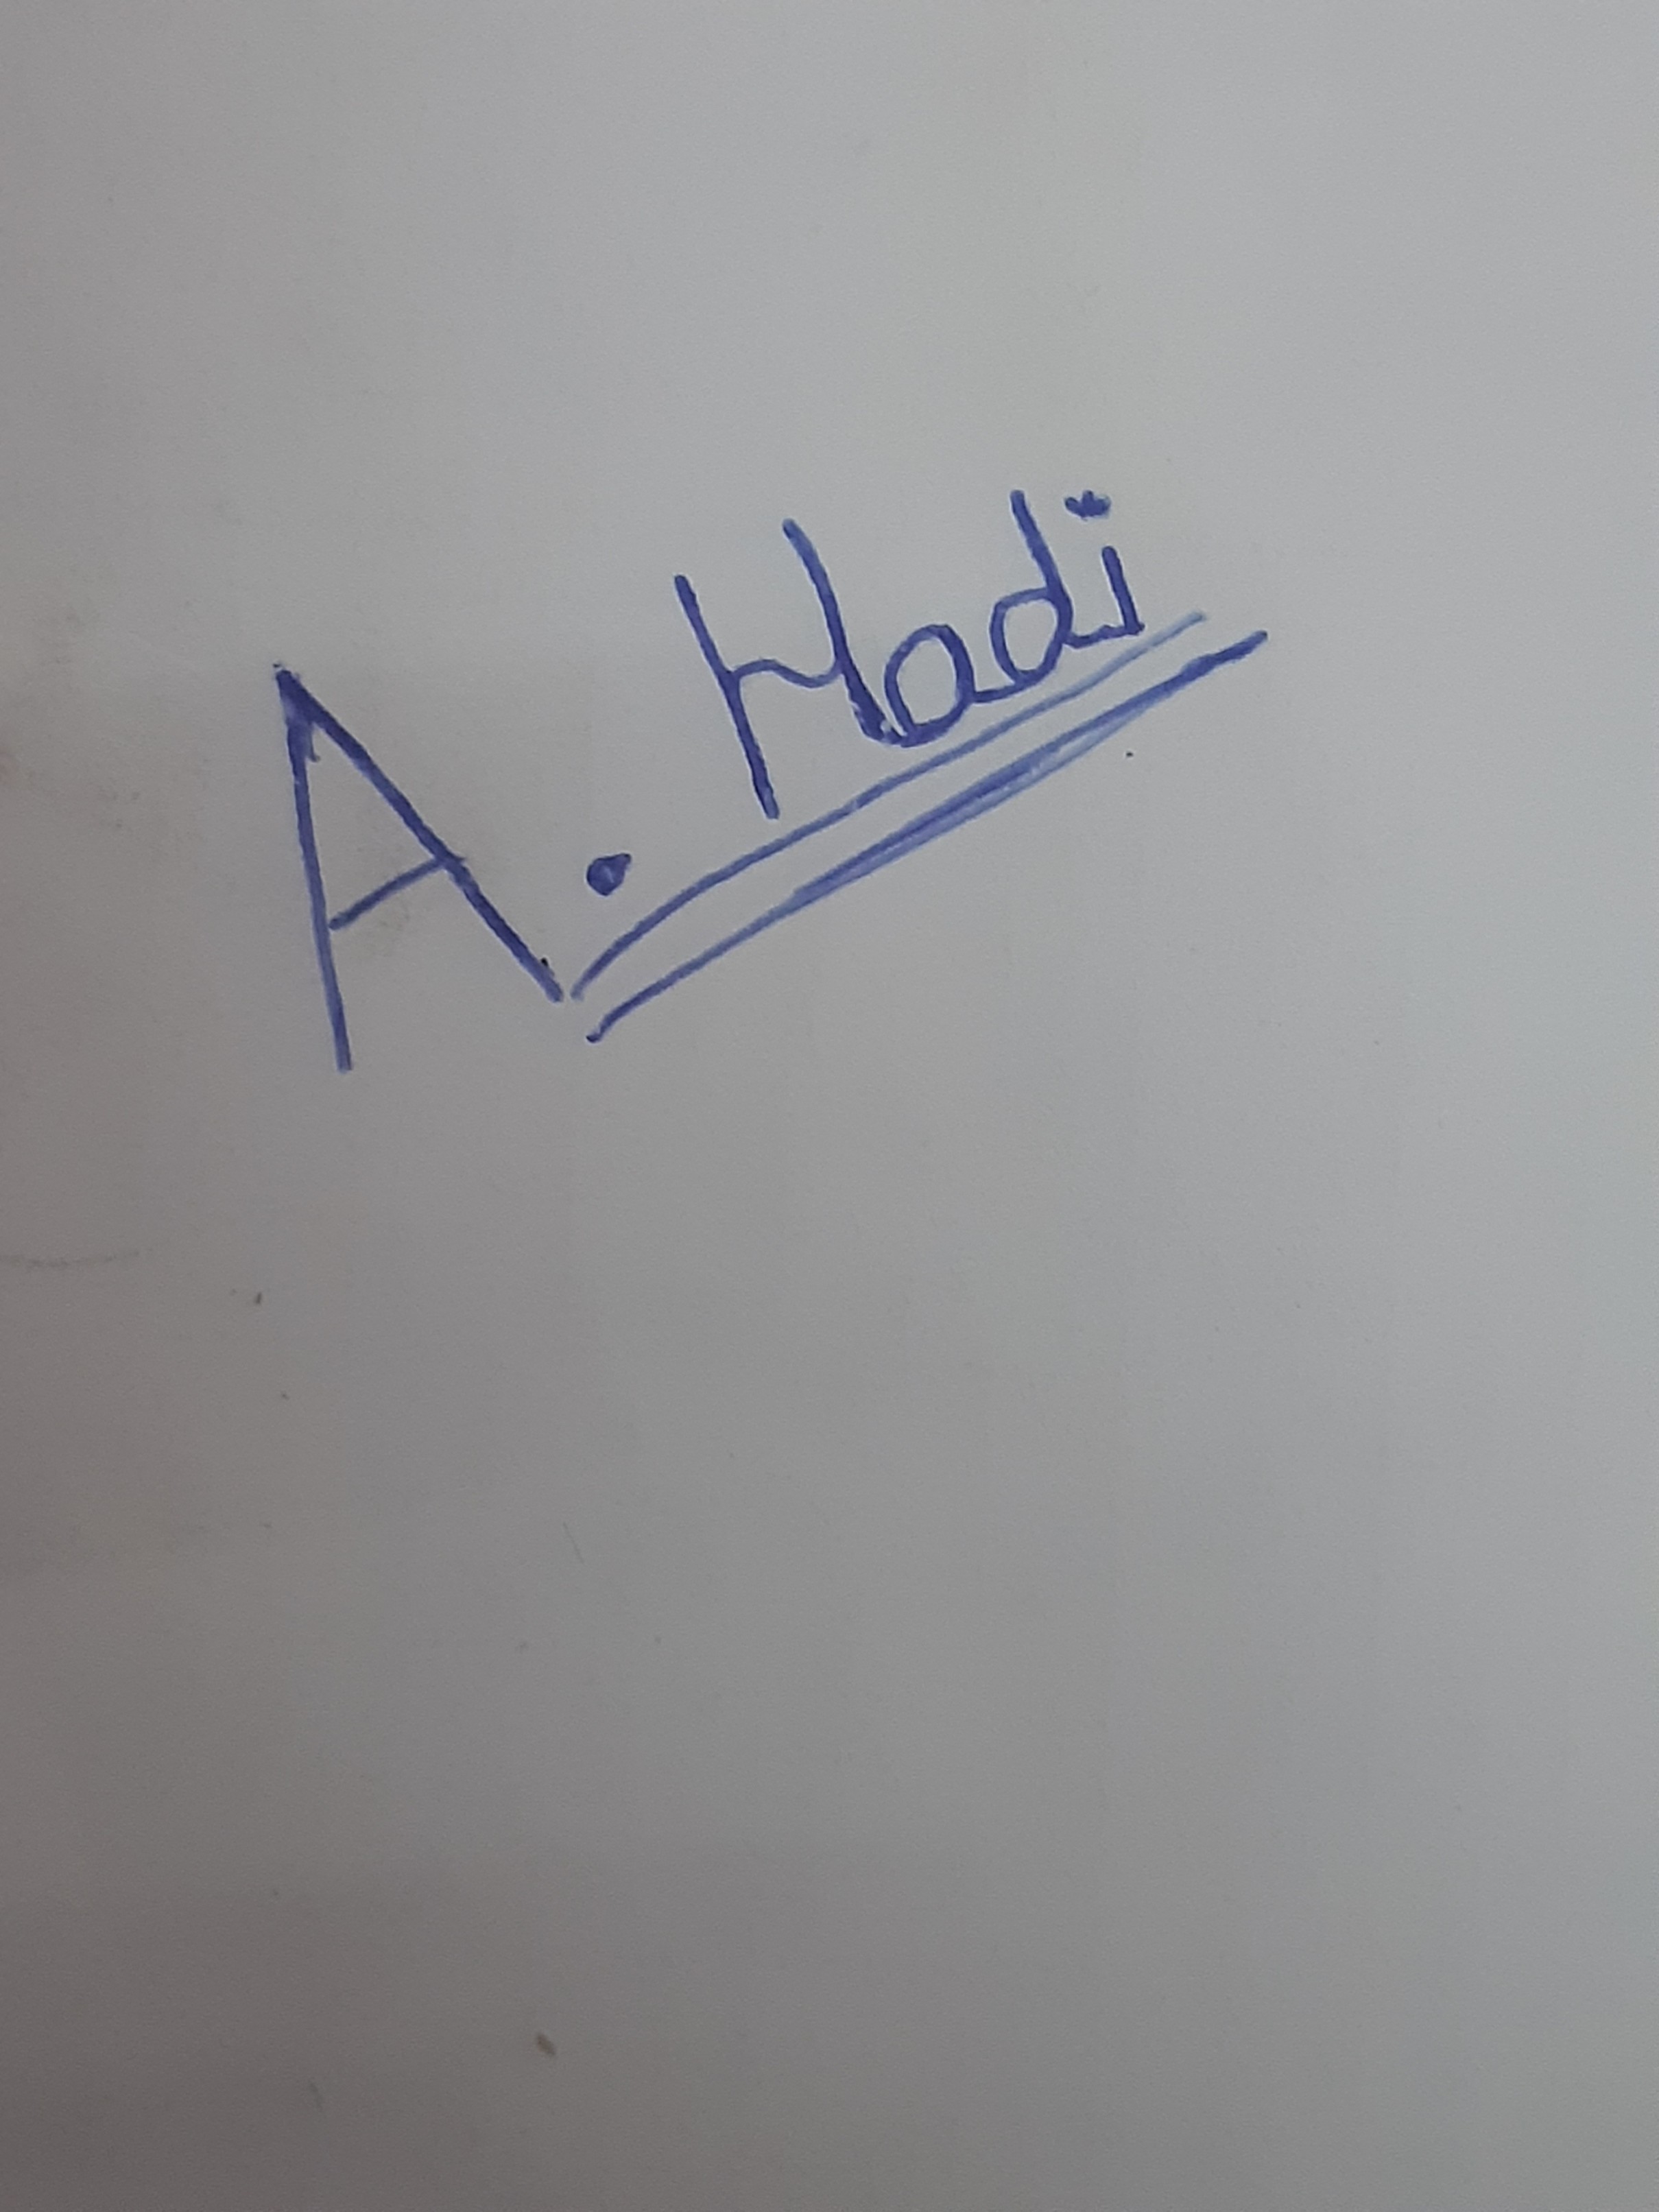 A. Hadi